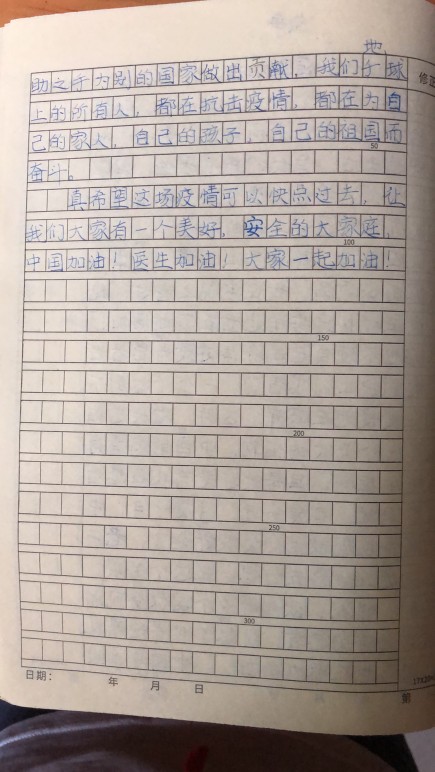 地
助之手为别的国家做出贡献，我们于球
修正
上的所有人，都在抗击疫情，都在为自
己的家人，自己的孩子，自己的祖国而
50
奋斗。
真希望这场疫情可以快点过去，让
我们大家有一个美好，安全的大家庭，
100
中国加油！医生加油！大家一起加油！
150
200
250
300
日期： 年 月 日
第